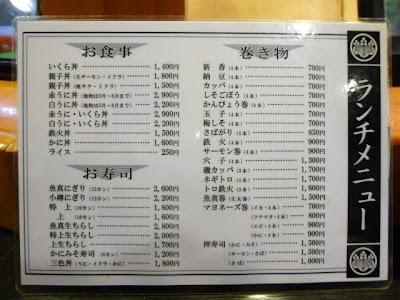 ランチメニュー
お食事
いくら丼 1,400円
親子丼(生サーモン・イクラ) 1,800円
親子丼(焼サケ・イクラ) 1,500円
赤うに丼(地物は5月~8月まで) 2,200円
白うに丼(地物は5月~8月まで) 2,200円
赤うに・いくら丼 2,900円
白うに・いくら丼 2,200円
鉄火丼 1,500円
かに丼 1,600円
ライス 250円
お寿司
魚真にぎり(15カン) 2,600円
小樽にぎり(12カン) 2,200円
特上(10カン) 1,800円
上(10カン) 1,600円
魚真生ちらし 2,800円
特上生ちらし 2,200円
上生ちらし 1,700円
かにみそ寿司(8カン) 1,200円
三色丼(うに・イクラ・かに) 1,800円
巻き物
新香(4本) 700円
納豆(4本) 700円
カッパ(4本) 700円
しそごぼう(4本) 700円
かんぴょう巻(4本) 700円
玉子(4本) 700円
梅しそ(4本) 700円
さばがり(4本) 850円
鉄火(4本) 900円
サーモン巻(4本) 900円
穴子(4本) 1,300円
磯カッパ(4本) 1,100円
ネギトロ(4本) 1,300円
トロ鉄火(4本) 1,800円
魚真巻(生太巻) 1,500円
マヨネーズ巻(イカ・4本) 700円
(ツナマヨ・4本) 800円
(エビ・4本) 900円
(かに・4本) 900円
押寿司(かに・みそ) 1,500円
(サーモン・さば) 1,500円
(さば) 1,000円